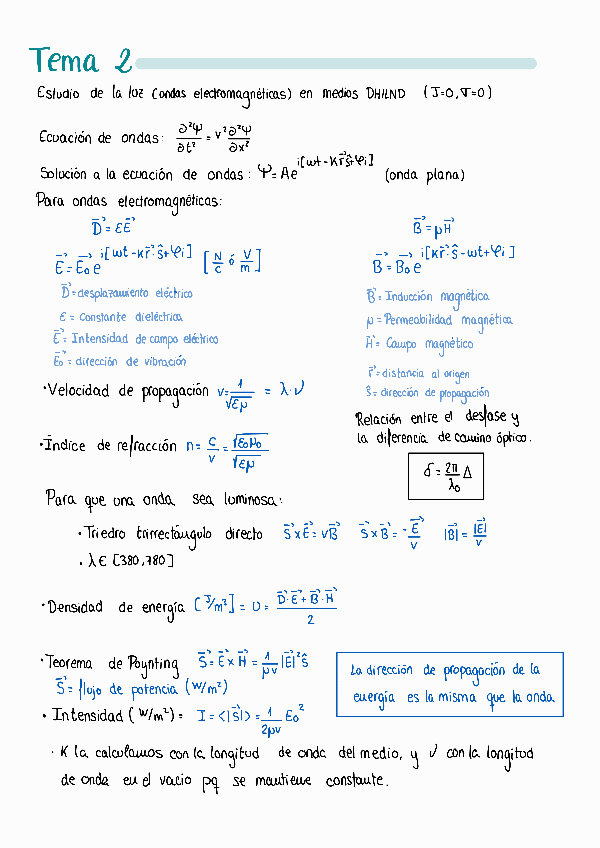 Tema 2
Estudio de la luz (ondas electromagnéticas) en medios DHILND (J=0, σ=0)
Ecuación de ondas: ∂²Ψ/∂t² = v² ∂²Ψ/∂x²
Solución a la ecuación de ondas: Ψ=Ae^i[ωt-Kr⃗·ŝ+φi] (onda plana)
Para ondas electromagnéticas:
D⃗=εE⃗
E⃗=E⃗₀e^i[ωt-Kr⃗·ŝ+φi] [N/C ó V/m]
D⃗=desplazamiento eléctrico
ε = Constante dieléctrica
E⃗= Intensidad de campo eléctrico
E⃗₀= dirección de vibración
B⃗=μH⃗
B⃗=B⃗₀e^i[Kr⃗·ŝ-ωt+φi]
B⃗= Inducción magnética
μ=Permeabilidad magnética
H⃗= Campo magnético
r⃗=distancia al origen
ŝ=dirección de propagación
·Velocidad de propagación v=1/√εμ = λ·ν
·Índice de refracción n= c/v = √ε₀μ₀/√εμ
Relación entre el desfase y
la diferencia de camino óptico.
δ= 2π/λ₀ Δ
Para que una onda sea luminosa:
· Triedro trirrectángulo directo S⃗xE⃗=vB⃗ S⃗xB⃗=-E⃗/v |B⃗|=|E⃗|/v
· λ∈ [380,780]
·Densidad de energía [J/m²] = U = D⃗·E⃗+B⃗·H⃗/2
·Teorema de Poynting S⃗=E⃗xH⃗= 1/μv |E⃗|²ŝ
S⃗= flujo de potencia (W/m²)
· Intensidad (W/m²)= I=<|S⃗|>= 1/2μv E₀²
La dirección de propagación de la
energía es la misma que la onda
· K la calculamos con la longitud de onda del medio, y ν con la longitud
de onda en el vacio pq se mantiene constante.